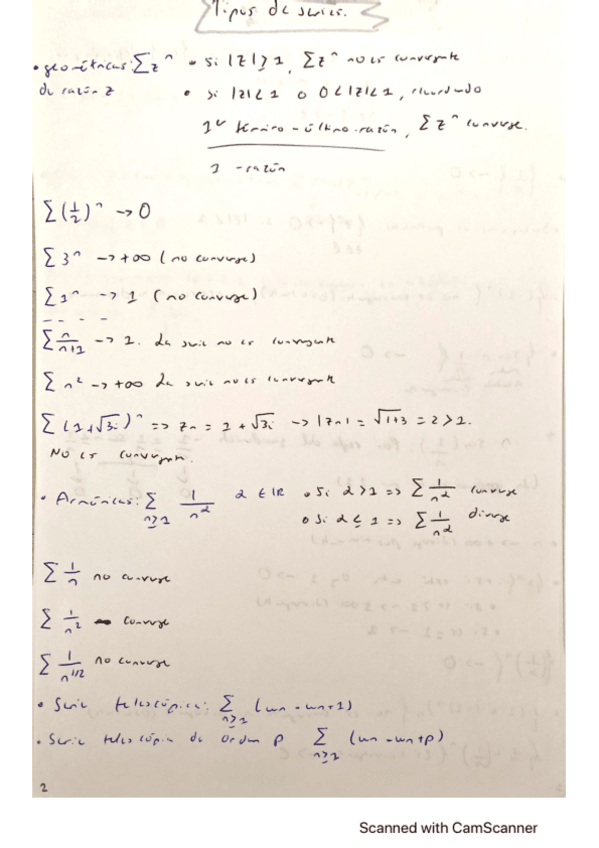 Tipos de series.
• geométricas: Σz^n • si |z| ≥ 1, Σz^n no es convergente
de razón z • si |z| < 1 o 0<|z|<1, recordando
1er término - último · razón, Σz^n converge.
1 - razón
Σ(1/2)^n → 0
Σ 3^n → +∞ (no converge)
Σ 1^n → 1 (no converge)
Σ n/n+1 → 1. La serie no es convergente
Σ n² → +∞ La serie no es convergente
Σ(1+√3i)^n => zn = 1 + √3i → |zn| = √1+3 = 2 > 1.
No es convergente.
• Armónicas: Σ n≥1 1/n^α α ∈ IR • Si α > 1 => Σ 1/n^α converge
• Si α ≤ 1 => Σ 1/n^α diverge
Σ 1/n no converge
Σ 1/n² converge
Σ 1/n^1/2 no converge
• Serie telescópica: Σ n≥1 (un - un+1)
• Serie telescópica de orden p Σ n≥1 (un - un+p)
2
Scanned with CamScanner